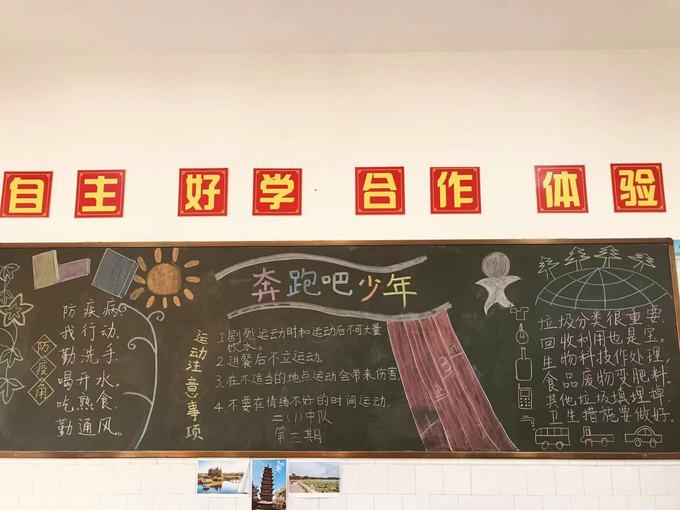 自主 好学 合作 体验
奔跑吧少年
防疫角
防疾病
我行动
勤洗手
喝开水
吃熟食
勤通风
运动注意事项
1.剧烈运动时和运动后不可大量
饮水。
2.进餐后不立运动.
3.在不适当的地点运动会带来伤害.
4.不要在情绪不好的时间运动.
二(1)中队
第二期
垃圾分类很重要
回收利用也是宝。
生物科技作处理
食品废物变肥料
其他垃圾填埋掉
卫生措施要做好.